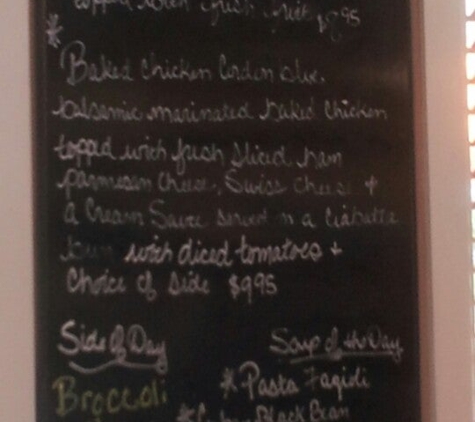 topped with fresh fruit $8.95
* Baked Chicken Cordon blue.
balsamic marinated baked chicken
topped with fresh sliced ham
parmesan cheese, Swiss cheese +
a Cream Sauce served on a Ciabatta
bun with diced tomatoes +
Choice of Side $9.95
Side of Day
Broccoli
Soup of the Day
* Pasta Fagioli
* Black Bean